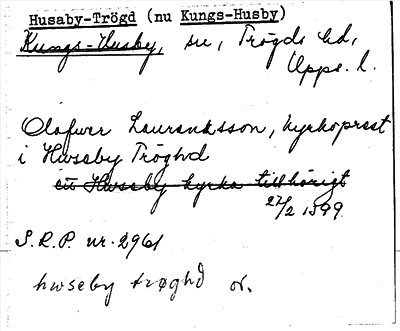 Husaby-Trögd (nu Kungs-Husby)
Kungs-Husby, sn, Trögds hd,
Upps. l.
Olafwer Laurenksson, kyrkoprest
i Hwseby Tröghd
en Hwseby kyrka tillhörigt
27/2 1399
S.R.P. nr. 2961
hwseby trøghd or.